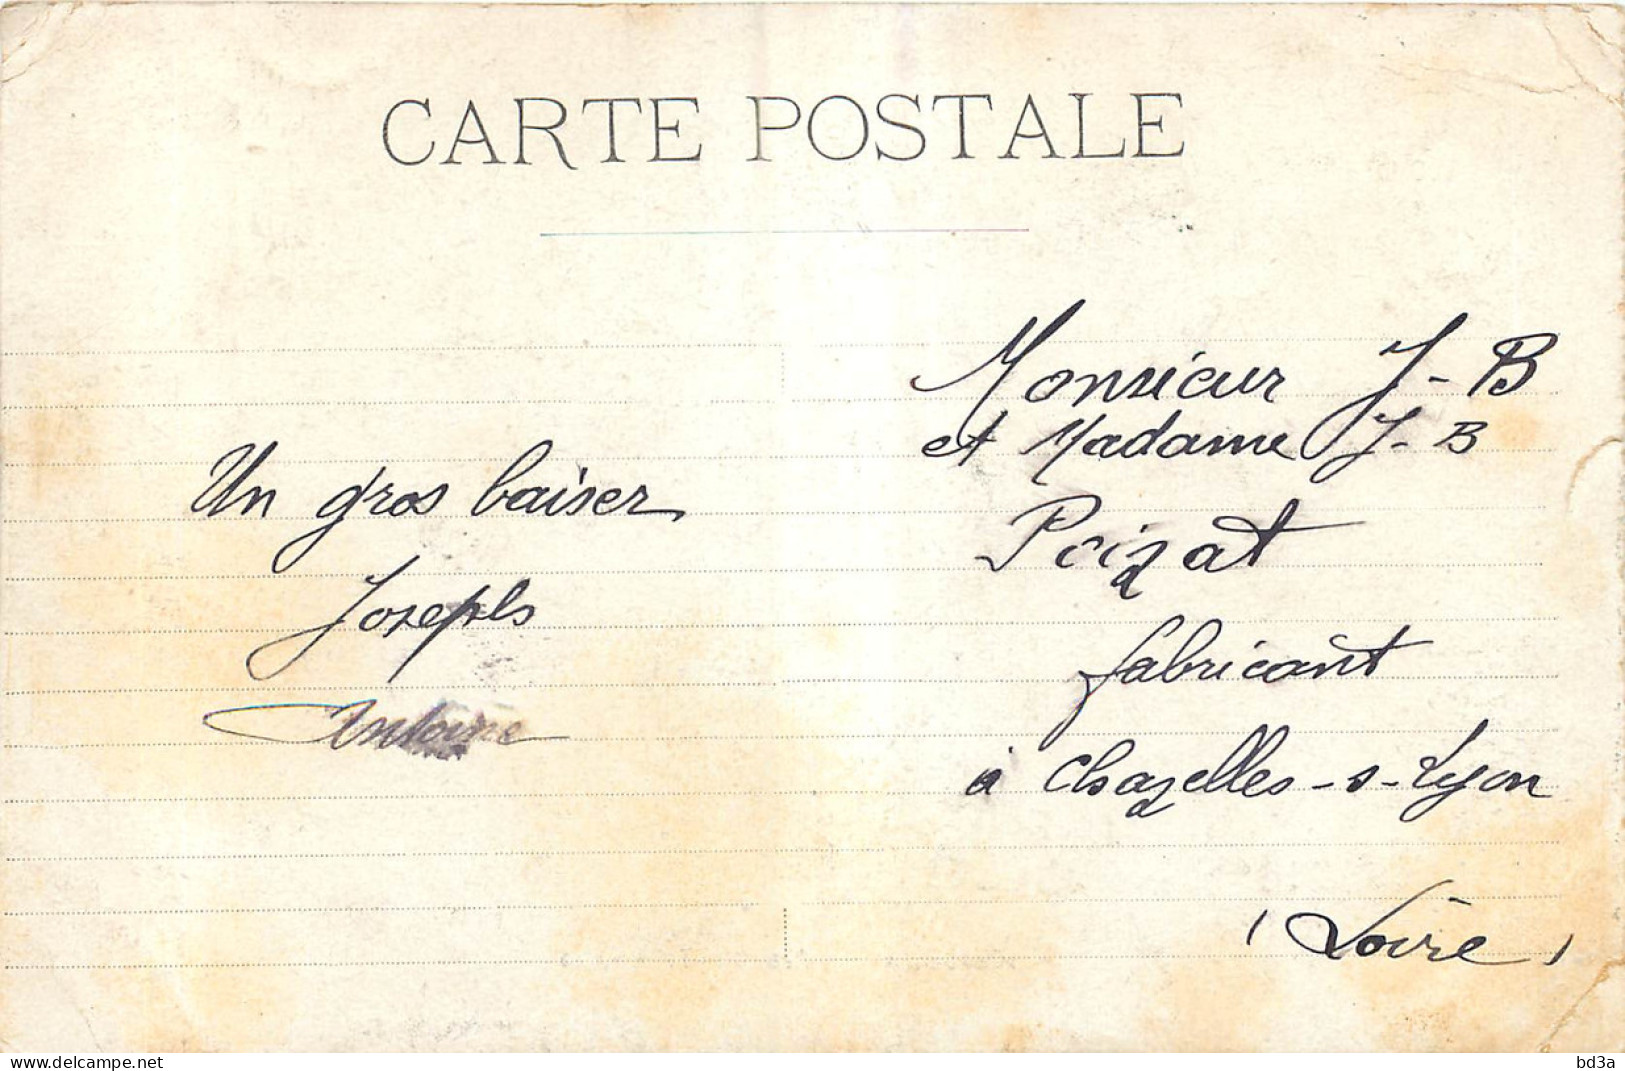 CARTE POSTALE
Un gros baiser
Joseph
Antoine
Monsieur J-B
et Madame J-B
Poizat
fabricant
à Chazelles-s-Lyon
(Loire)
www.delcampe.net
bd3a